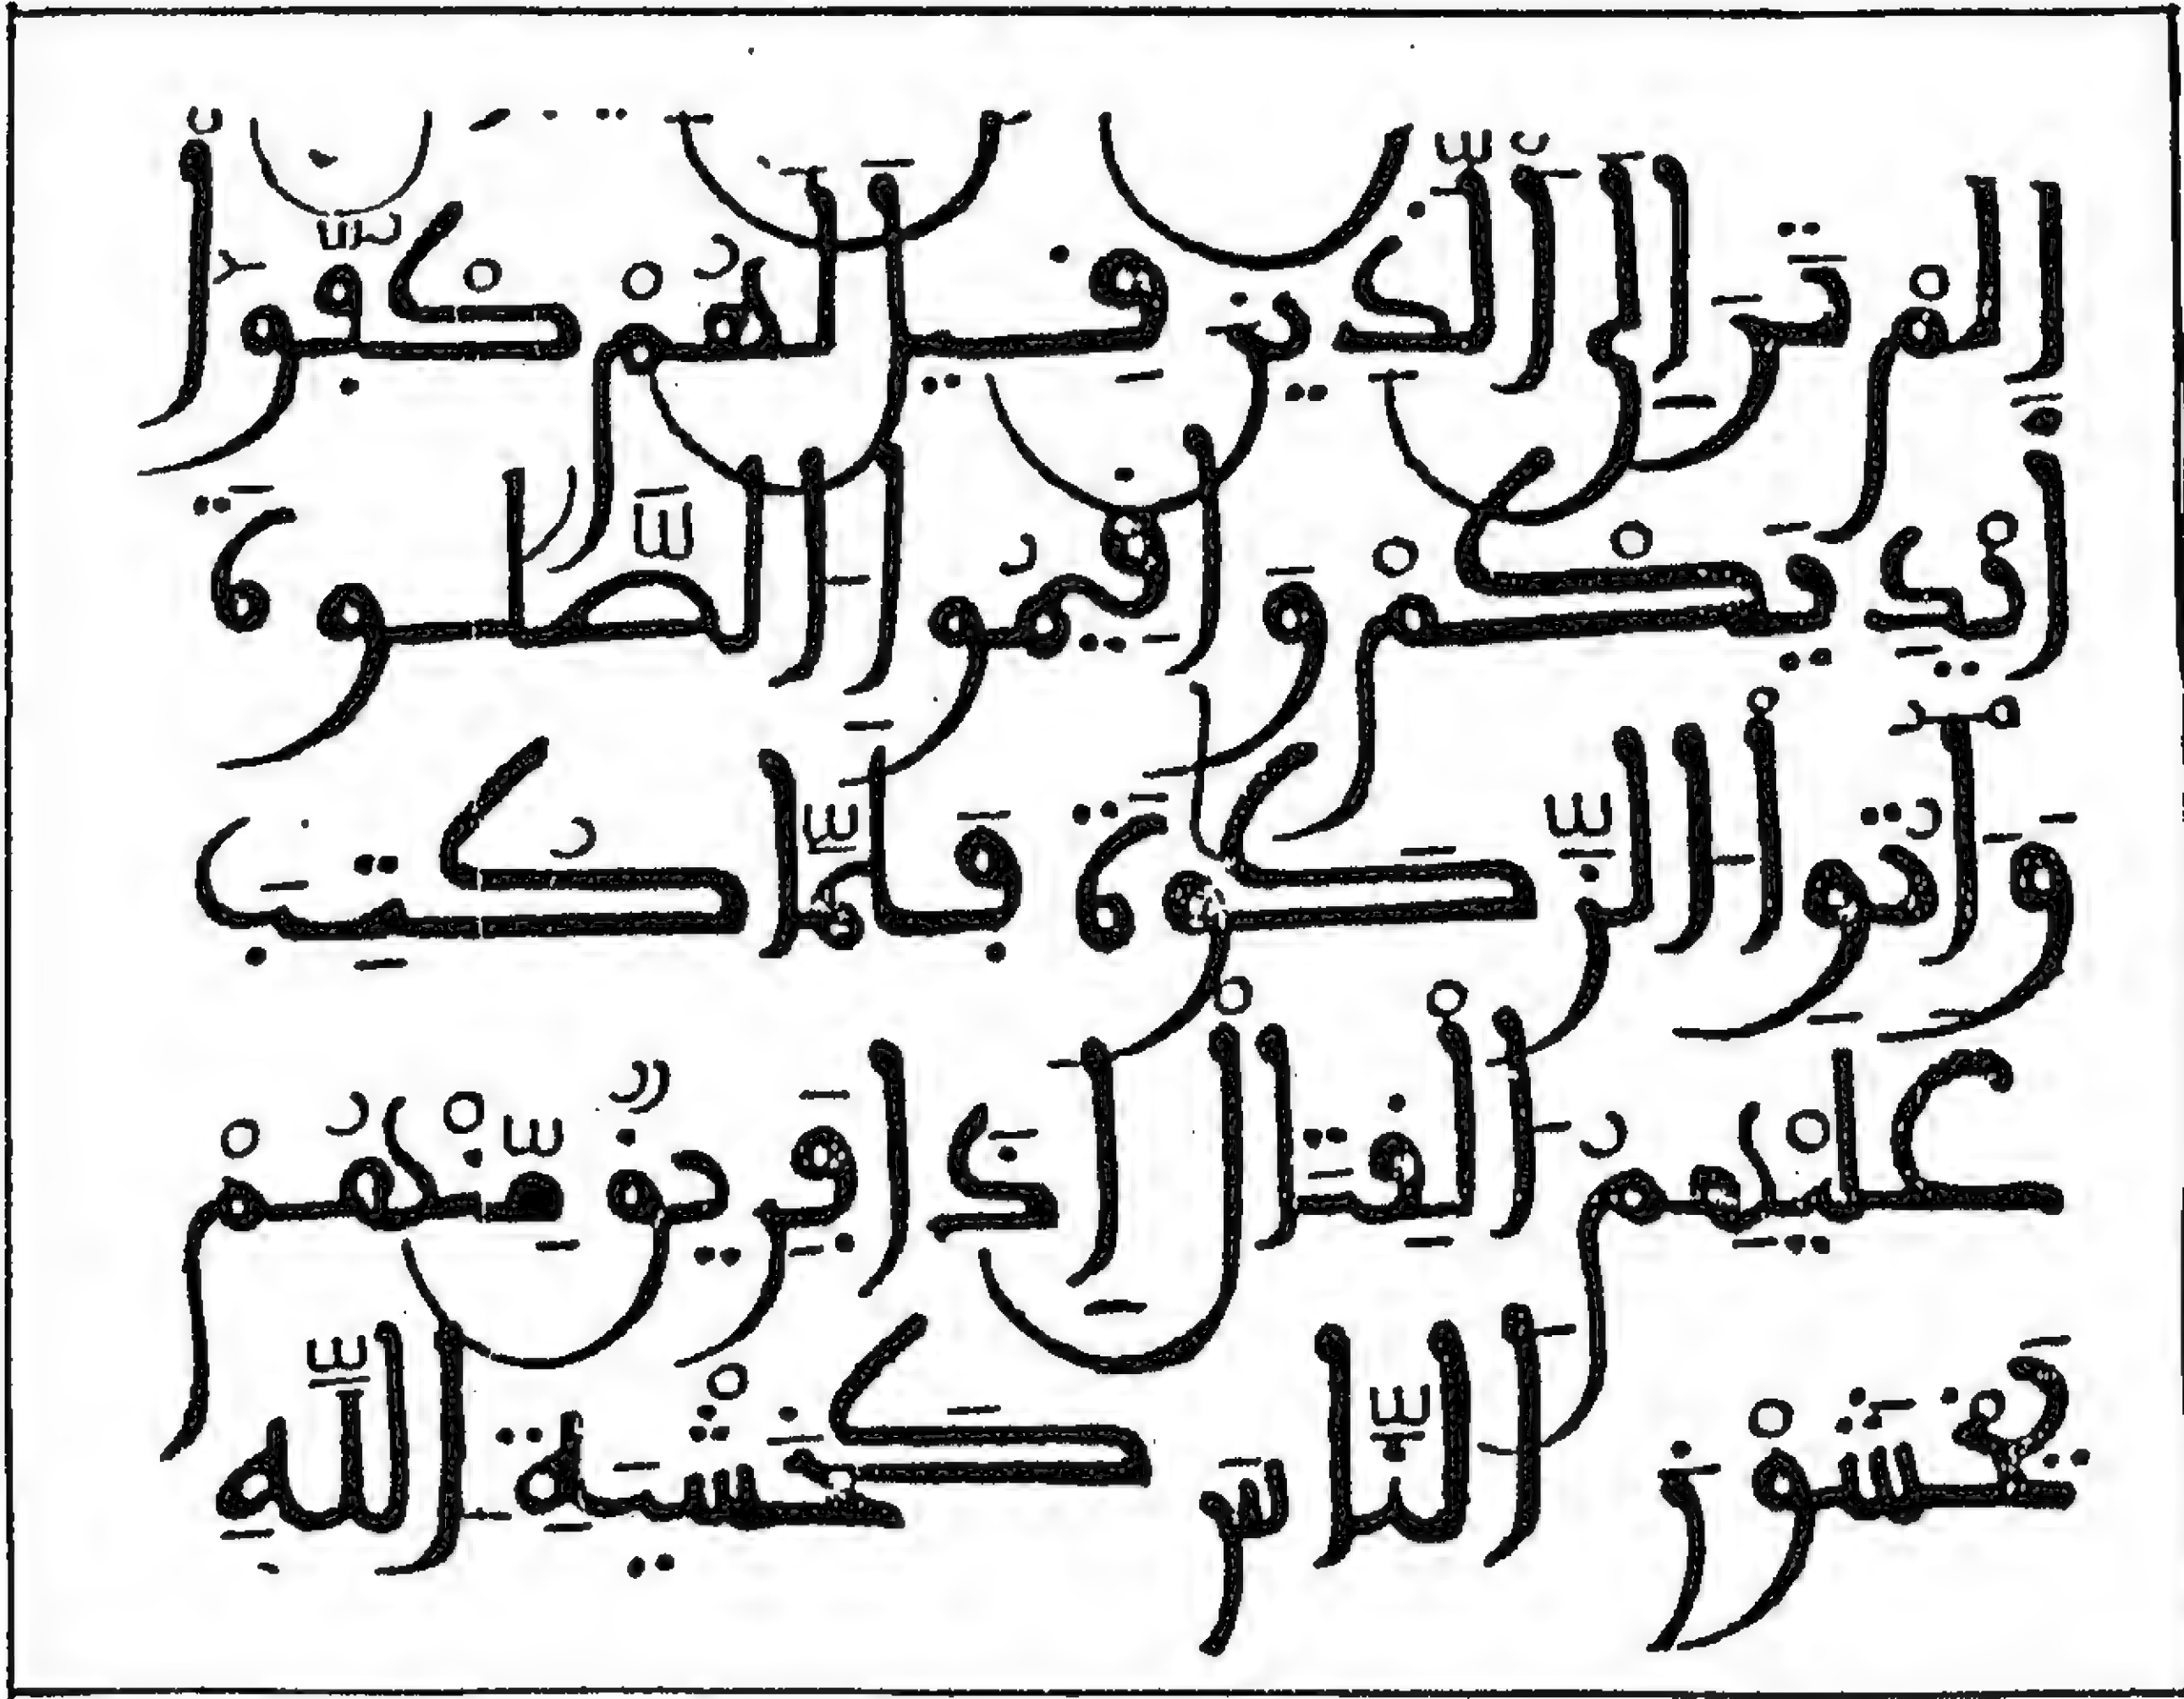 اَلَمْ تَرَ إِلَى اَ۬لذِينَ قِيلَ لَهُمْ كُفُّوٓاْ
أَيْدِيَكُمْ وَأَقِيمُواْ اُ۬لصَّلَوٰةَ
وَءَاتُواْ اُ۬لزَّكَوٰةَ فَلَمَّا كُتِبَ
عَلَيْهِمُ اُ۬لْقِتَالُ إِذَا فَرِيقٌ مِّنْهُمْ
يَخْشَوْنَ اَ۬لنَّاسَ كَخَشْيَةِ اِ۬للَّهِ